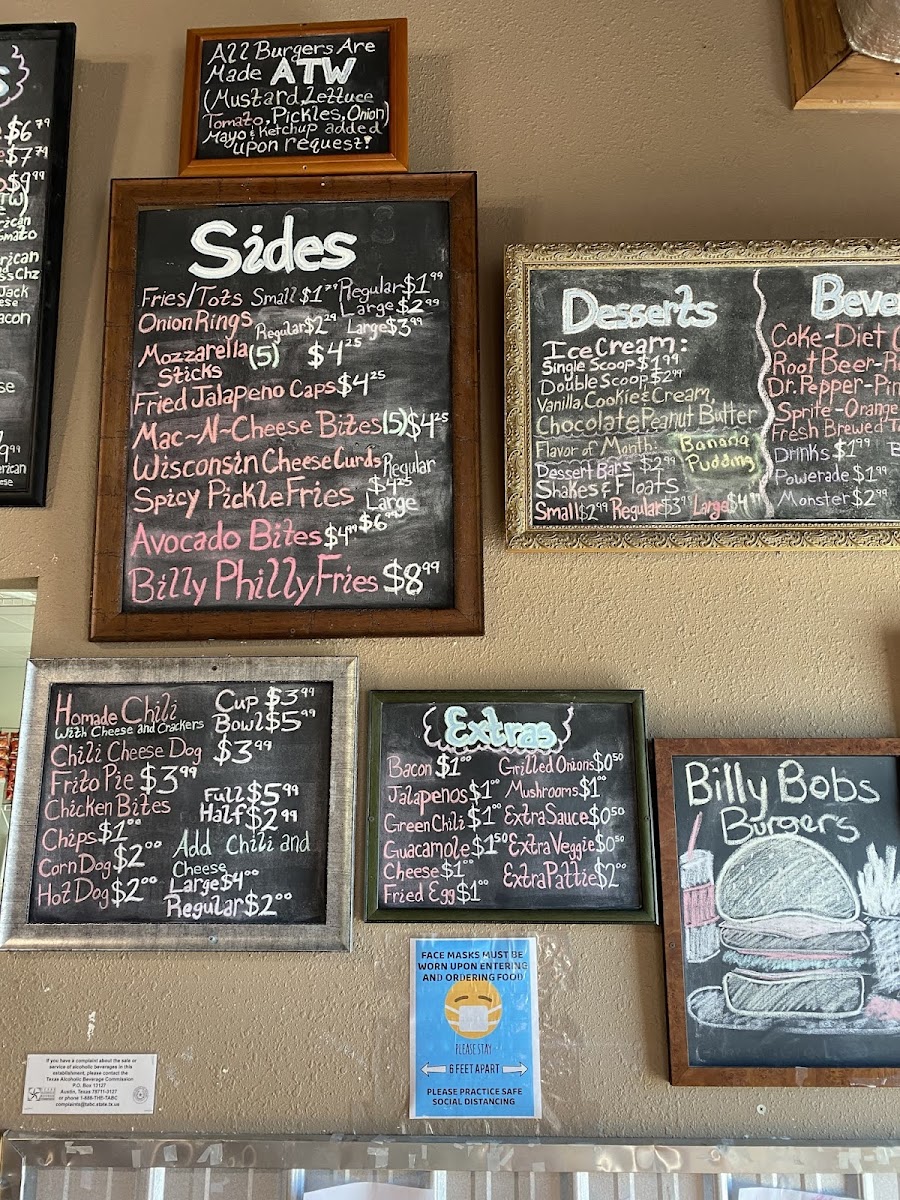 $6.79
$7.79
$9.99
All Burgers Are
Made ATW
(Mustard, Lettuce
Tomato, Pickles, Onion)
Mayo & Ketchup added
upon request!
Sides
Fries/Tots Small $1 Regular $1.99
Large $2.99
Onion Rings Regular $2.29 Large $3.99
Mozzarella (5) $4.25
Sticks
Fried Jalapeno Caps $4.25
Mac-N-Cheese Bites (5) $4.25
Wisconsin Cheese Curds Regular
Spicy Pickle Fries $4.25
Large
$6.99
Avocado Bites $4.99
Billy Philly Fries $8.99
Desserts
Ice Cream:
Single Scoop $1.99
Double Scoop $2.99
Vanilla, Cookie & Cream,
Chocolate Peanut Butter
Flavor of Month: Banana
Pudding
Dessert Bars $2.99
Shakes & Floats
Small $2.99 Regular $3 Large $4.99
Bever
Coke-Diet
Root Beer-R
Dr. Pepper-Pin
Sprite-Orange
Fresh Brewed T
Drinks $1.99
Powerade $1.99
Monster $2.99
Homade Chili Cup $3.99
With Cheese and Crackers Bowl $5.99
Chili Cheese Dog $3.99
Frito Pie $3.99
Chicken Bites Full $5.99
Half $2.99
Chips $1.00
Corn Dog $2.00
Hot Dog $2.00
Add Chili and
Cheese
Large $4.00
Regular $2.00
Extras
Bacon $1.00 Grilled Onions $0.50
Jalapenos $1.00 Mushrooms $1.00
Green Chili $1.00 Extra Sauce $0.50
Guacamole $1.50 Extra Veggie $0.50
Cheese $1.00 Extra Pattie $2.00
Fried Egg $1.00
Billy Bobs
Burgers
FACE MASKS MUST BE
WORN UPON ENTERING
AND ORDERING FOOD
PLEASE STAY
6 FEET APART
PLEASE PRACTICE SAFE
SOCIAL DISTANCING
If you have a complaint about the sale or
service of alcoholic beverages in this
establishment, please contact the
Texas Alcoholic Beverage Commission
P.O. Box 13127
Austin, Texas 78711-3127
or phone 1-888-THE-TABC
complaints@tabc.state.tx.us